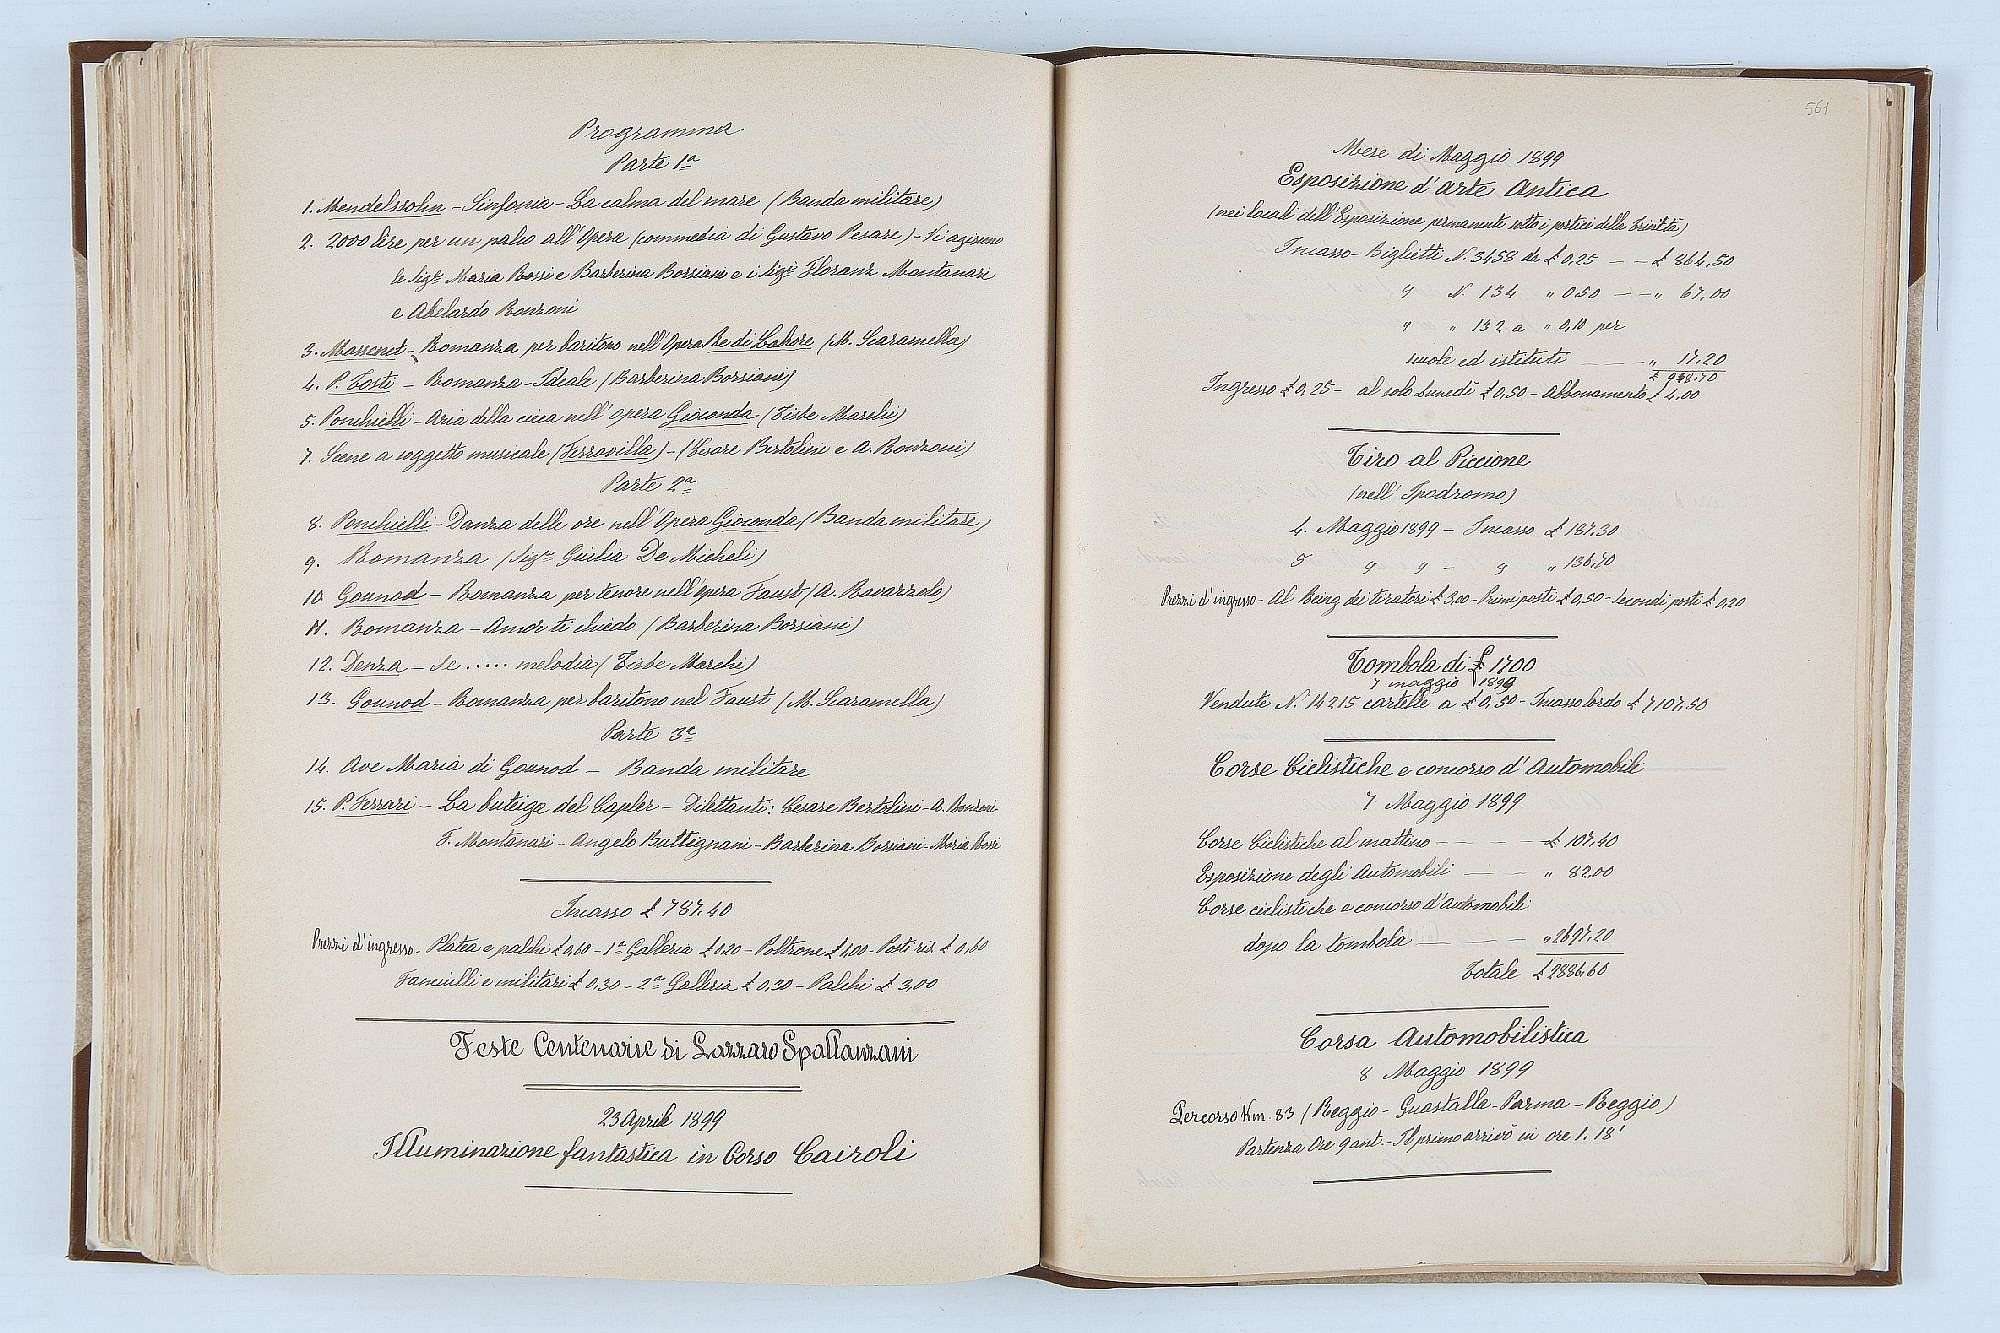 Programma
Parte 1ª
1. Mendelssohn - Sinfonia - La calma del mare (Banda militare)
2. 2000 lire per un palco all'Opera (commedia di Gustavo Pesare) - Vi agirono
le Sigᵉ Maria Rossi e Barberina Borsiani e i Sigⁱ Floranz Montanari
e Abelardo Bonzoni
3. Massenet - Romanza per baritono nell'Opera Re di Lahore (M. Scaramella)
4. P. Tosti - Romanza - Ideale (Barberina Borsiani)
5. Ponchielli - Aria della cieca nell'opera Gioconda - (Tisbe Marchi)
7. Scene a soggetto musicale (Ferravilla) - (Cesare Bertolini e A. Bonzoni)
Parte 2ª
8. Ponchielli - Danza delle ore nell'Opera Gioconda (Banda militare)
9. Romanza (Sigⁿᵃ Giulia De Micheli)
10. Gounod - Romanza per tenore nell'opera Faust (A. Ravazzolo)
11. Romanza - Amor ti chiedo (Barberina Borsiani)
12. Denza - Se ..... melodia (Tisbe Marchi)
13. Gounod - Romanza per baritono nel Faust (M. Scaramella)
Parte 3ª
14. Ave Maria di Gounod - Banda militare
15. P. Ferrari - La buteiga del Caplèr - Dilettanti: Cesare Bertolini - A. Bonzoni
F. Montanari - Angelo Buttignani - Barberina Borsiani - Maria Rossi
Incasso £ 787.40
Prezzi d'ingresso - Platea e palchi £ 0,60 - 1ª Galleria £ 0.20 - Poltrone £ 1,00 - Posti ris. £ 0,60
Fanciulli e militari £ 0,30 - 2ª Galleria £ 0,20 - Palchi £ 3,00
Feste Centenarie di Lazzaro Spallanzani
23 Aprile 1899
Illuminazione fantastica in Corso Cairoli
561
Mese di Maggio 1899
Esposizione d'arte Antica
(nei locali dell'Esposizione permanente sotto i portici della Trinità)
Incasso - Biglietti N. 3458 da £ 0,25 - - £ 864,50
" N. 134 " 0.50 - - " 67,00
" " 132 a " 0,10 per
scuole ed istituti - - " 17.20
£ 948.70
Ingresso £ 0,25 - al solo Lunedì £ 0,50 - Abbonamento £ 4.00
Tiro al Piccione
(nell' Ipodromo)
4. Maggio 1899 - Incasso £ 187.30
5 " " - " " 136,70
Prezzi d'ingresso - Al Ring dei tiratori £ 3,00 - Primi posti £ 0,50 - Secondi posti £ 0,20
Tombola di £ 1700
7 maggio 1899
Vendute N. 14215 cartelle a £ 0,50 - Incasso lordo £ 7107,50
Corse Ciclistiche e concorso d'Automobili
7 Maggio 1899
Corse Ciclistiche al mattino - - - £ 107.40
Esposizione degli Automobili - - " 82.00
Corse ciclistiche e concorso d'Automobili
dopo la tombola - - - " 2697,20
Totale £ 2886.60
Corsa Automobilistica
8 Maggio 1899
Percorso Km. 83 (Reggio - Guastalla - Parma - Reggio)
Partenza Ore 9 ant. - Il primo arrivò in ore 1.18'